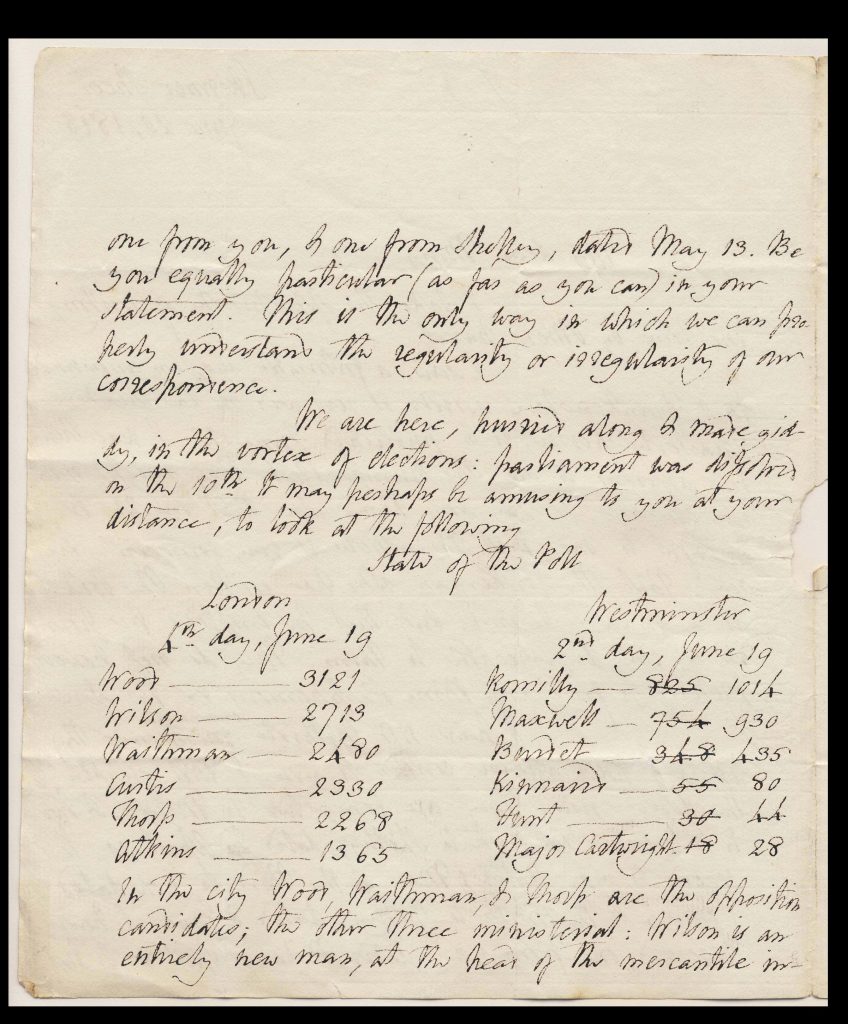 one from you, & one from Shelley, dated May 13. Be
you equally particular (as far as you can) in your
statement. This is the only way in which we can pro-
perly understand the regularity or irregularity of our
correspondence.
We are here, hurried along & made gid-
dy, in the vortex of elections: parliament was dissolved
on the 10th. It may perhaps be amusing to you at your
distance, to look at the following
State of the Poll
London
4th day, June 19
Wood — 3121
Wilson — 2713
Waithman — 2480
Curtis — 2330
Thorp — 2268
Atkins — 1365
Westminster
2nd day, June 19
Romilly — 825 1014
Maxwell — 754 930
Burdet — 348 435
Kinnaird — 55 80
Hunt — 30 44
Major Cartwright 18 28
In the city Wood, Waithman, & Thorp are the opposition
candidates; the other three ministerial: Wilson is an
entirely new man, at the head of the mercantile in-